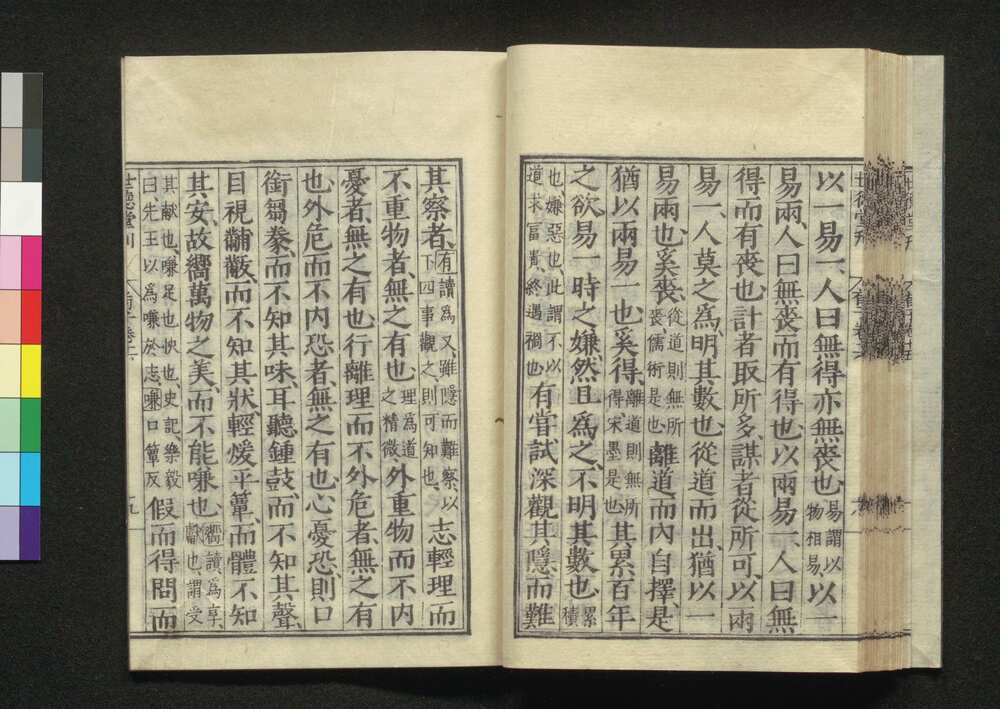 以一易一、人曰無得亦無喪也、易謂以物相易、以一
易兩、人曰無喪而有得也、以兩易一、人曰無
得而有喪也、計者取所多、謀者從所可、以兩
易一、人莫之爲、明其數也、從道而出、猶以一
易兩也、奚喪、從道則無所喪儒術是也離道而內自擇、是
猶以兩易一也、奚得、離道則無所得宋墨是也其累百年
之欲、易一時之嫌、然且爲之、不明其數也、累積
也、嫌惡也、此謂不以道求富貴、終遇禍也有嘗試深觀其隱而難
其察者、有讀爲又、雖隱而難察、以下四事觀之、則可知也、志輕理而
不重物者、無之有也、理爲道之精微外重物而不內
憂者、無之有也、行離理而不外危者、無之有
也、外危而不內恐者、無之有也、心憂恐、則口
銜芻豢、而不知其味、耳聽鍾鼓、而不知其聲、
目視黼黻、而不知其狀、輕煖平簟、而體不知
其安、故嚮萬物之美、而不能嗛也、嚮讀爲享、獻也、謂受
其献也、嗛足也、快也、史記、樂毅曰先王以爲嗛於志、嗛口簟反假而得問而
世德堂刊